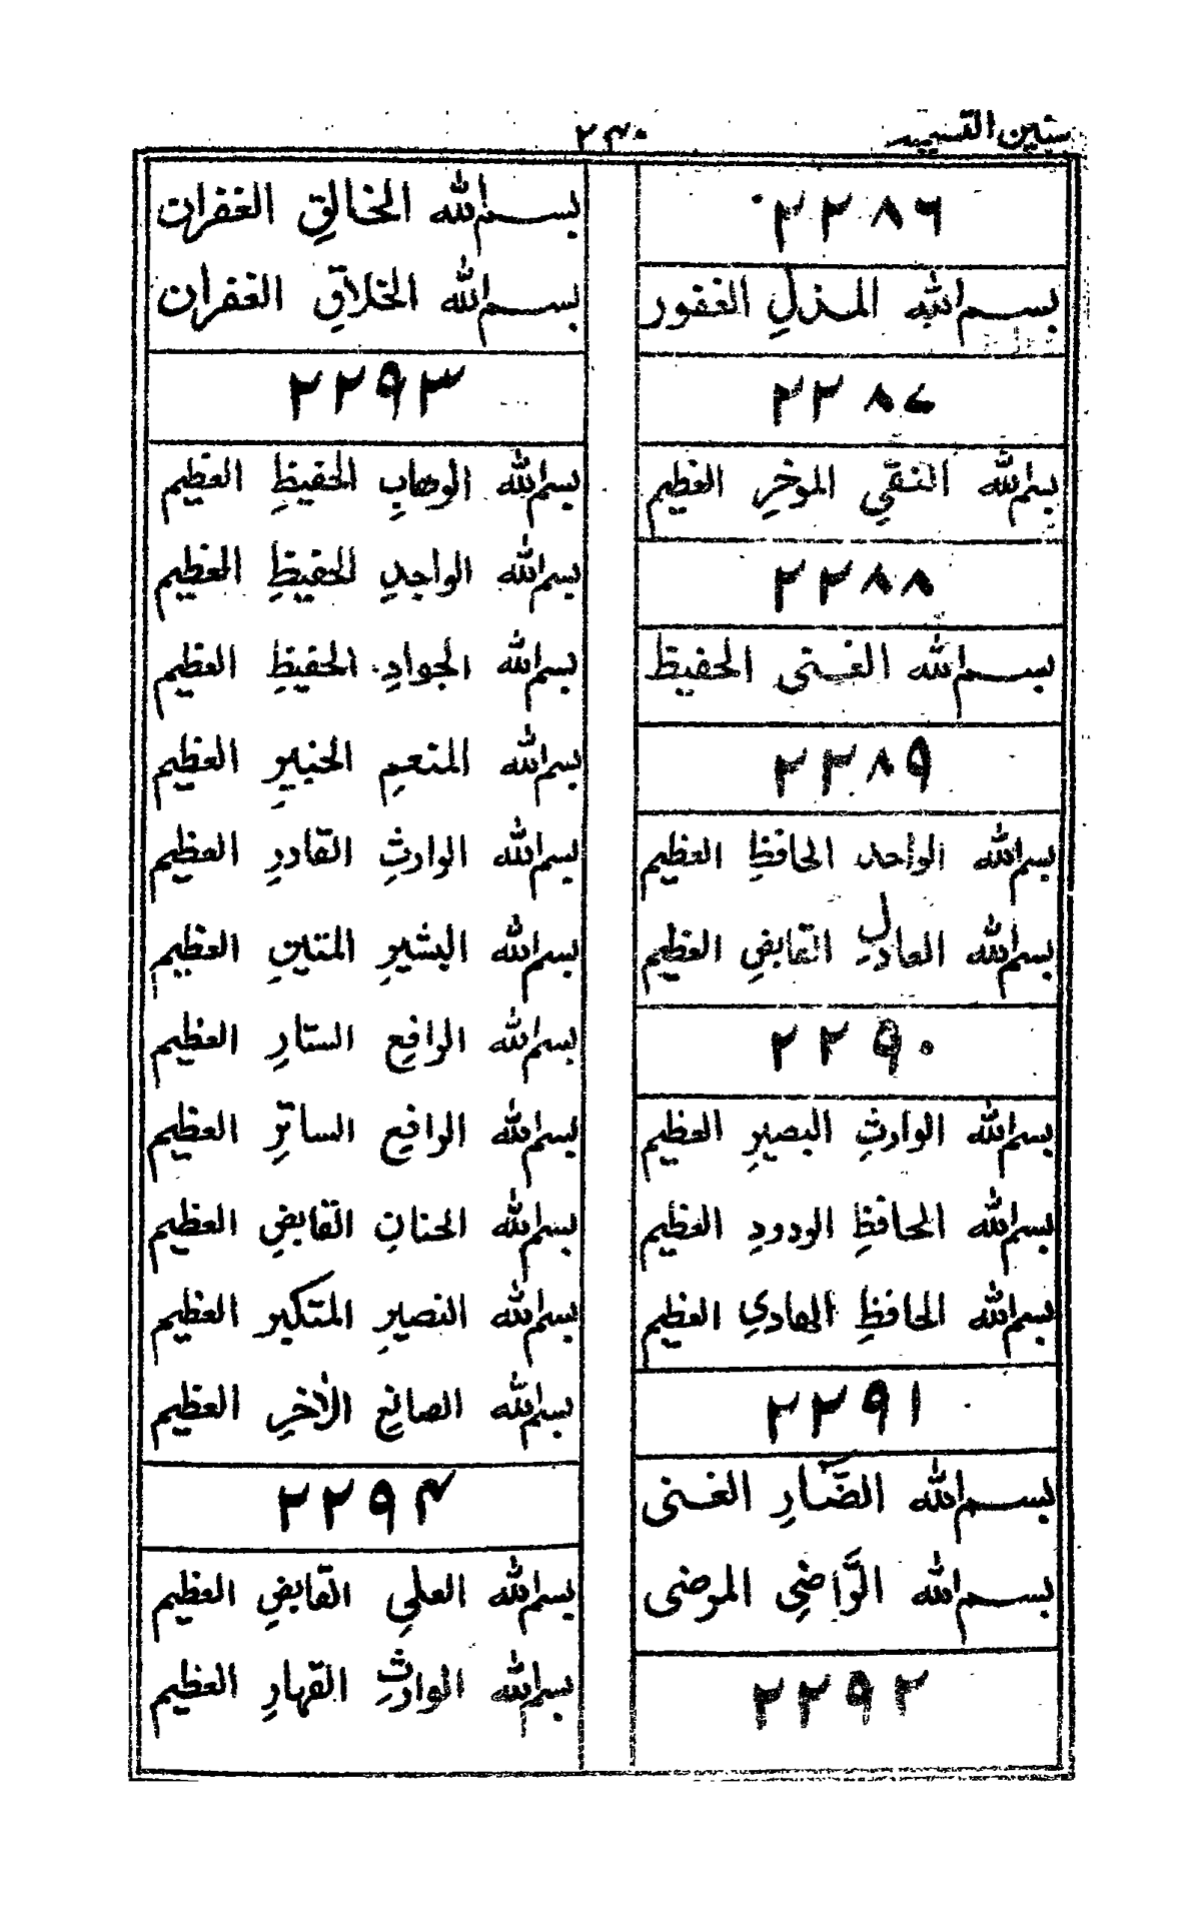 سنين التسميه
۲۴۰
۲۲۸۶
بسم الله المذلِ الغفور
۲۲۸۷
بسم الله النقيِ الموخرِ العظيم
۲۲۸۸
بسم الله الغنى الحفيظ
۲۲۸۹
بسم الله الواحد الحافظِ العظيم
بسم الله العادلِ القابضِ العظيم
۲۲۹۰
بسم الله الوارثِ البصيرِ العظيم
بسم الله الحافظِ الودودِ العظيم
بسم الله الحافظِ الهاديِ العظيم
۲۲۹۱
بسم الله الضَّارِ الغنى
بسم الله الرَّاضِي المرضى
۲۲۹۲
بسم الله الخالقِ الغفران
بسم الله الخلاقِ الغفران
۲۲۹۳
بسم الله الوهابِ الحفيظِ العظيم
بسم الله الواجدِ الحفيظِ العظيم
بسم الله الجوادِ الحفيظِ العظيم
بسم الله المنعمِ الخبيرِ العظيم
بسم الله الوارثِ القادرِ العظيم
بسم الله البشيرِ المتينِ العظيم
بسم الله الرافعِ الستارِ العظيم
بسم الله الرافعِ الساترِ العظيم
بسم الله الحنانِ القابضِ العظيم
بسم الله النصيرِ المتكبر العظيم
بسم الله الصانعِ الاخرِ العظيم
۲۲۹۴
بسم الله العليِ القابضِ العظيم
بسم الله الوارثِ القهارِ العظيم